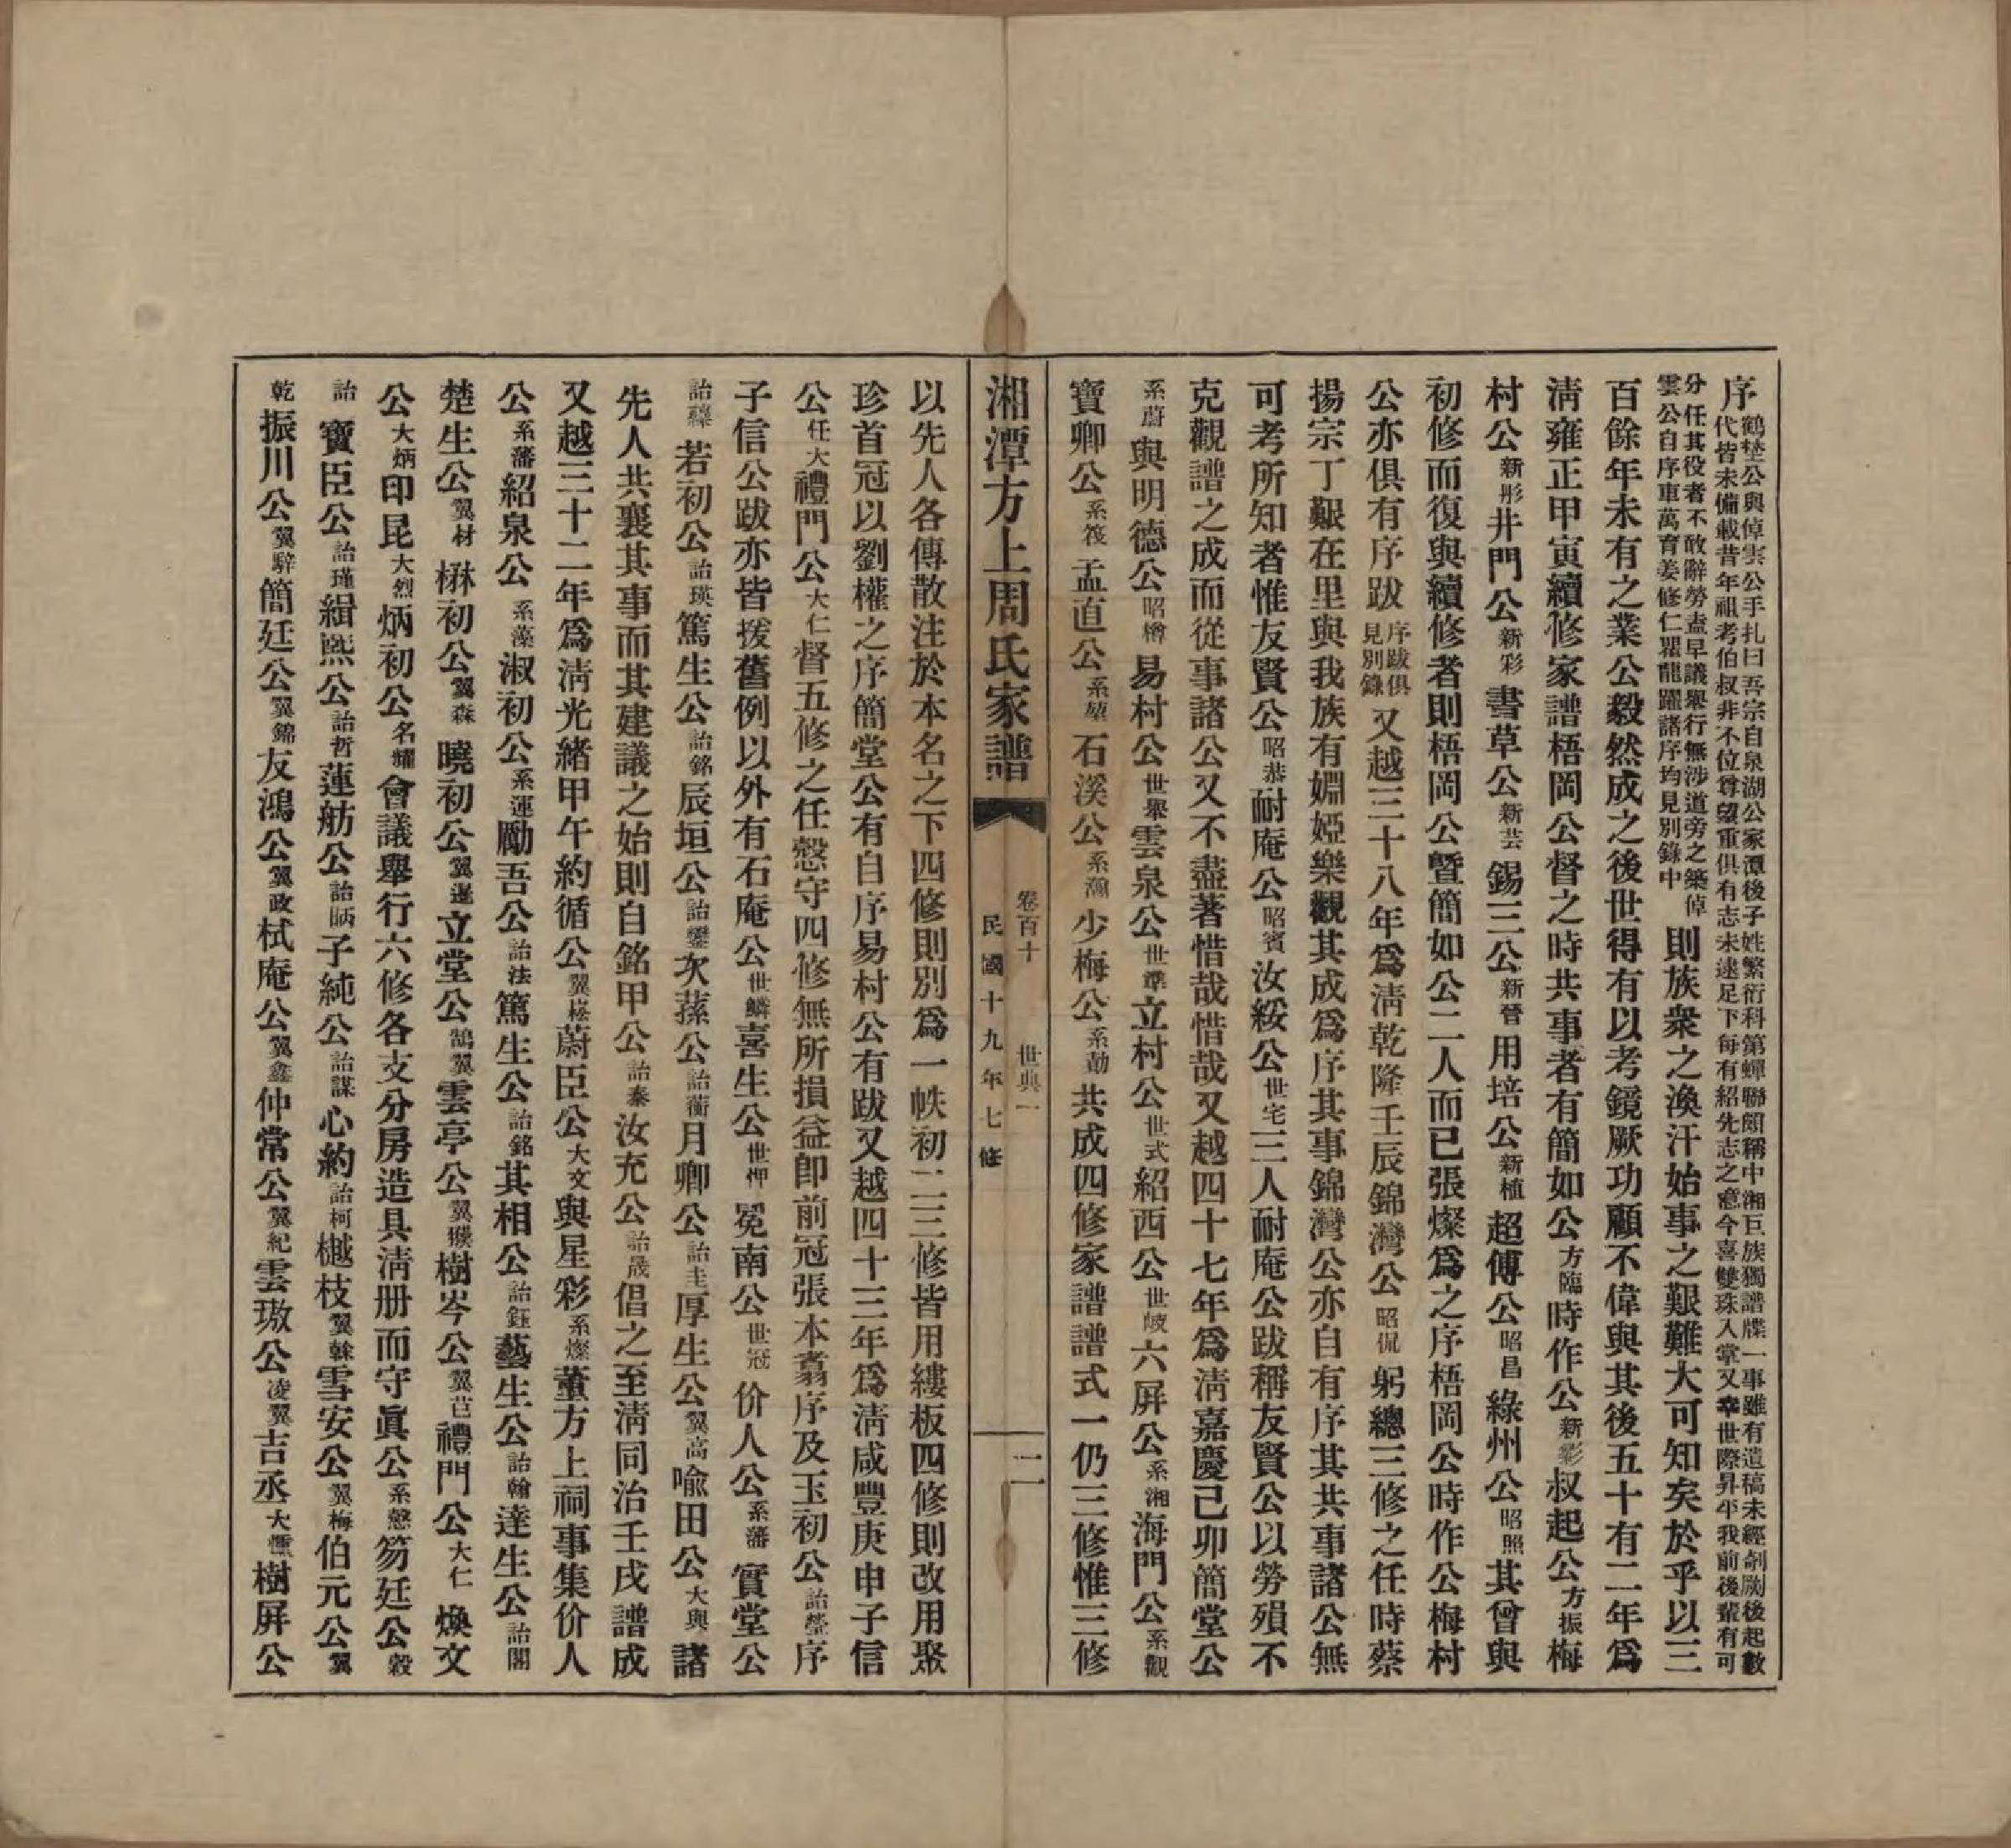 序鶴埜公與倬雲公手扎曰吾宗自泉湖公家潭後子姓繁衍科第蟬聯頗稱中湘巨族獨譜牒一事雖有遺稿未經剞劂後起數
代皆未備載昔年祖考伯叔非不位尊望重俱有志未逮足下每有紹先志之意今喜雙珠入掌又幸世際昇平我前後輩有可
分任其役者不敢辭勞盍早議舉行無涉道旁之築倬
雲公自序車萬育姜修仁瞿龍躍諸序均見別錄中則族衆之渙汗始事之艱難大可知矣於乎以三
百餘年未有之業公毅然成之後世得有以考鏡厥功顧不偉與其後五十有二年爲
淸雍正甲寅續修家譜梧岡公督之時共事者有簡如公方臨時作公新彩叔起公方振梅
村公新彤井門公新彩書草公新芸錫三公新晉用培公新植超傅公昭昌綠州公昭照其曾與
初修而復與續修者則梧岡公暨簡如公二人而已張燦爲之序梧岡公時作公梅村
公亦俱有序跋序跋俱見別錄又越三十八年爲淸乾隆壬辰錦灣公昭侃躬總三修之任時蔡
揚宗丁艱在里與我族有姻婭樂觀其成爲序其事錦灣公亦自有序其共事諸公無
可考所知者惟友賢公昭恭耐庵公昭賓汝綏公世宅三人耐庵公跋稱友賢公以勞殞不
克觀譜之成而從事諸公又不盡著惜哉惜哉又越四十七年爲淸嘉慶己卯簡堂公
系蔚與明德公昭樽易村公世舉雲泉公世準立村公世式紹西公世岐六屏公系湘海門公系觀
寶卿公系筏孟直公系堃石溪公系瀚少梅公系勛共成四修家譜譜式一仍三修惟三修
湘潭方上周氏家譜
卷百十　世典一
民國十九年七修
二
以先人各傳散注於本名之下四修則別爲一帙初二三修皆用縷板四修則改用聚
珍首冠以劉權之序簡堂公有自序易村公有跋又越四十三年爲淸咸豐庚申子信
公任大禮門公大仁督五修之任慤守四修無所損益卽前冠張本翥序及玉初公詒瑩序
子信公跋亦皆援舊例以外有石庵公世鱗喜生公世㤝冕南公世冠价人公系藩實堂公
詒藻若初公詒瑛篤生公詒銘辰垣公詒鑾次蓀公詒蘅月卿公詒圭厚生公翼高喩田公大輿諸
先人共襄其事而其建議之始則自銘甲公詒秦汝充公詒晟倡之至淸同治壬戌譜成
又越三十二年爲淸光緒甲午約循公翼崧蔚臣公大文與星彩系燦董方上祠事集价人
公系藩紹泉公系藻淑初公系運勵吾公詒法篤生公詒銘其相公詒鈺藝生公詒翰達生公詒閣
楚生公翼材楙初公翼森曉初公翼暹立堂公鵠翼雲亭公翼璨樹岑公翼芑禮門公大仁煥文
公大炳印昆大烈炳初公名耀會議舉行六修各支分房造具淸册而守眞公系慤笏廷公穀
詒寶臣公詒瑾緝熙公詒哲蓮舫公詒昞子純公詒謀心約詒柯樾枝翼榦雪安公翼梅伯元公翼
乾振川公翼騂簡廷公翼錦友鴻公翼政栻庵公翼鑫仲常公翼紀雲璈公凌翼吉丞大燻樹屏公